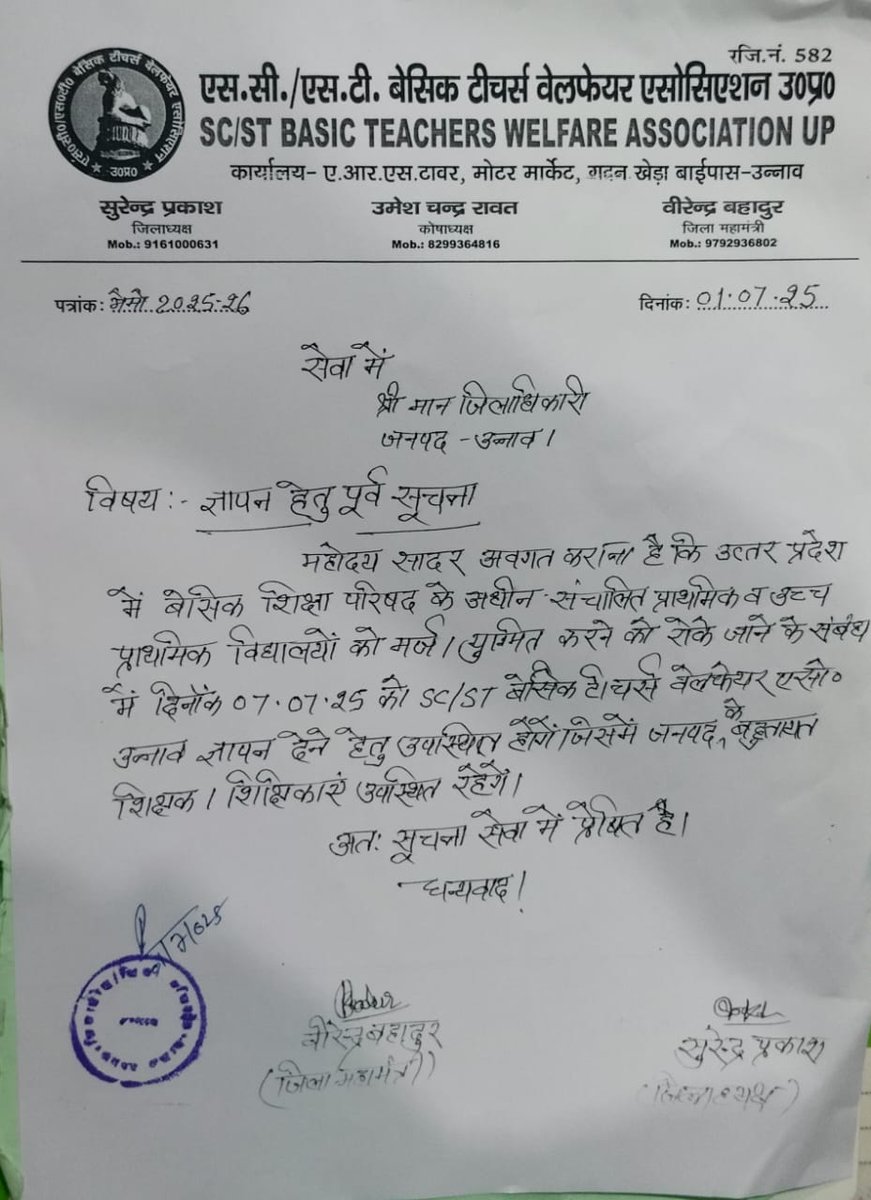 रजि.नं. 582
एस०सी०/एस०टी० बेसिक टीचर्स वेलफेयर एसोसिएशन
उ०प्र०
एस.सी./एस.टी. बेसिक टीचर्स वेलफेयर एसोसिएशन उ०प्र०
SC/ST BASIC TEACHERS WELFARE ASSOCIATION UP
कार्यालय- ए.आर.एस.टावर, मोटर मार्केट, गदन खेड़ा बाईपास-उन्नाव
सुरेन्द्र प्रकाश उमेश चन्द्र रावत वीरेन्द्र बहादुर
जिलाध्यक्ष कोषाध्यक्ष जिला महामंत्री
Mob.: 9161000631 Mob.: 8299364816 Mob.: 9792936802
पत्रांक: मैमो 2025-26 दिनांक: 01.07.25
सेवा में
श्री मान जिलाधिकारी
जनपद - उन्नाव।
विषय :- ज्ञापन हेतु पूर्व सूचना
महोदय सादर अवगत कराना है कि उत्तर प्रदेश
में बेसिक शिक्षा परिषद के अधीन संचालित प्राथमिक व उच्च
प्राथमिक विद्यालयों को मर्ज / युग्मित करने को रोके जाने के संबंध
में दिनाँक 07.07.25 को SC/ST बेसिक टीचर्स वेलफेयर एसो०
उन्नाव ज्ञापन देने हेतु उपस्थित होंगें जिसमें जनपद के बहुतायत
शिक्षक / शिक्षिकाएं उपस्थित रहेगें।
अतः सूचना सेवा में प्रेषित है।
धन्यवाद!
वीरेन्द्र बहादुर सुरेन्द्र प्रकाश
(जिला महामंत्री) (जिलाध्यक्ष)